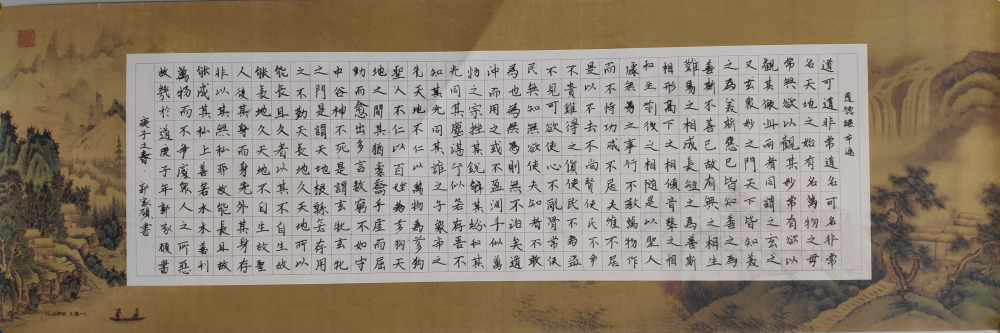 道德經節選
道可道非常道名可名非常
名天地之始有名萬物之母
常無欲以觀其妙常有欲以
觀其徼此兩者同謂之玄之
又玄衆妙之門天下皆知美
之為美斯惡已皆知善之為
善斯不善已故有無之相生
難易之相成長短之為善斯
相形高下之相傾音聲之相
和生前後之相隨是以聖人
處無為之事行不敎萬物作
而不恃功成不居夫唯不居
是以不去不尚賢使民不爭
不貴難得之貨使民不為盜
不見可欲使心不亂骨常使
民無知無欲使夫知者不敢
為也為無為則無不治矣道
沖而用之或不盈渊乎似萬
物之宗挫其銳解其紛和其
光同其塵湛兮似若存吾不
知其光同其誰之子象帝之
先天地不仁以萬物為芻狗
聖人不仁以百姓為芻狗天
地之間其猶橐籥乎虛而屈
動而愈出多言數窮不如守
中谷神不死是謂玄牝玄牝
之門是謂天地根緜若存用
之不勤天長地久天地所以
能長且久者以其不自生故
能長地久天地不自生故聖
人後其身而身先外其身存
非以其無私邪故能長且故
能成其私上善若水水善利
萬物而不爭處衆人之所惡
故幾於道庚子年郭家碩書
庚子之春 郭家碩書